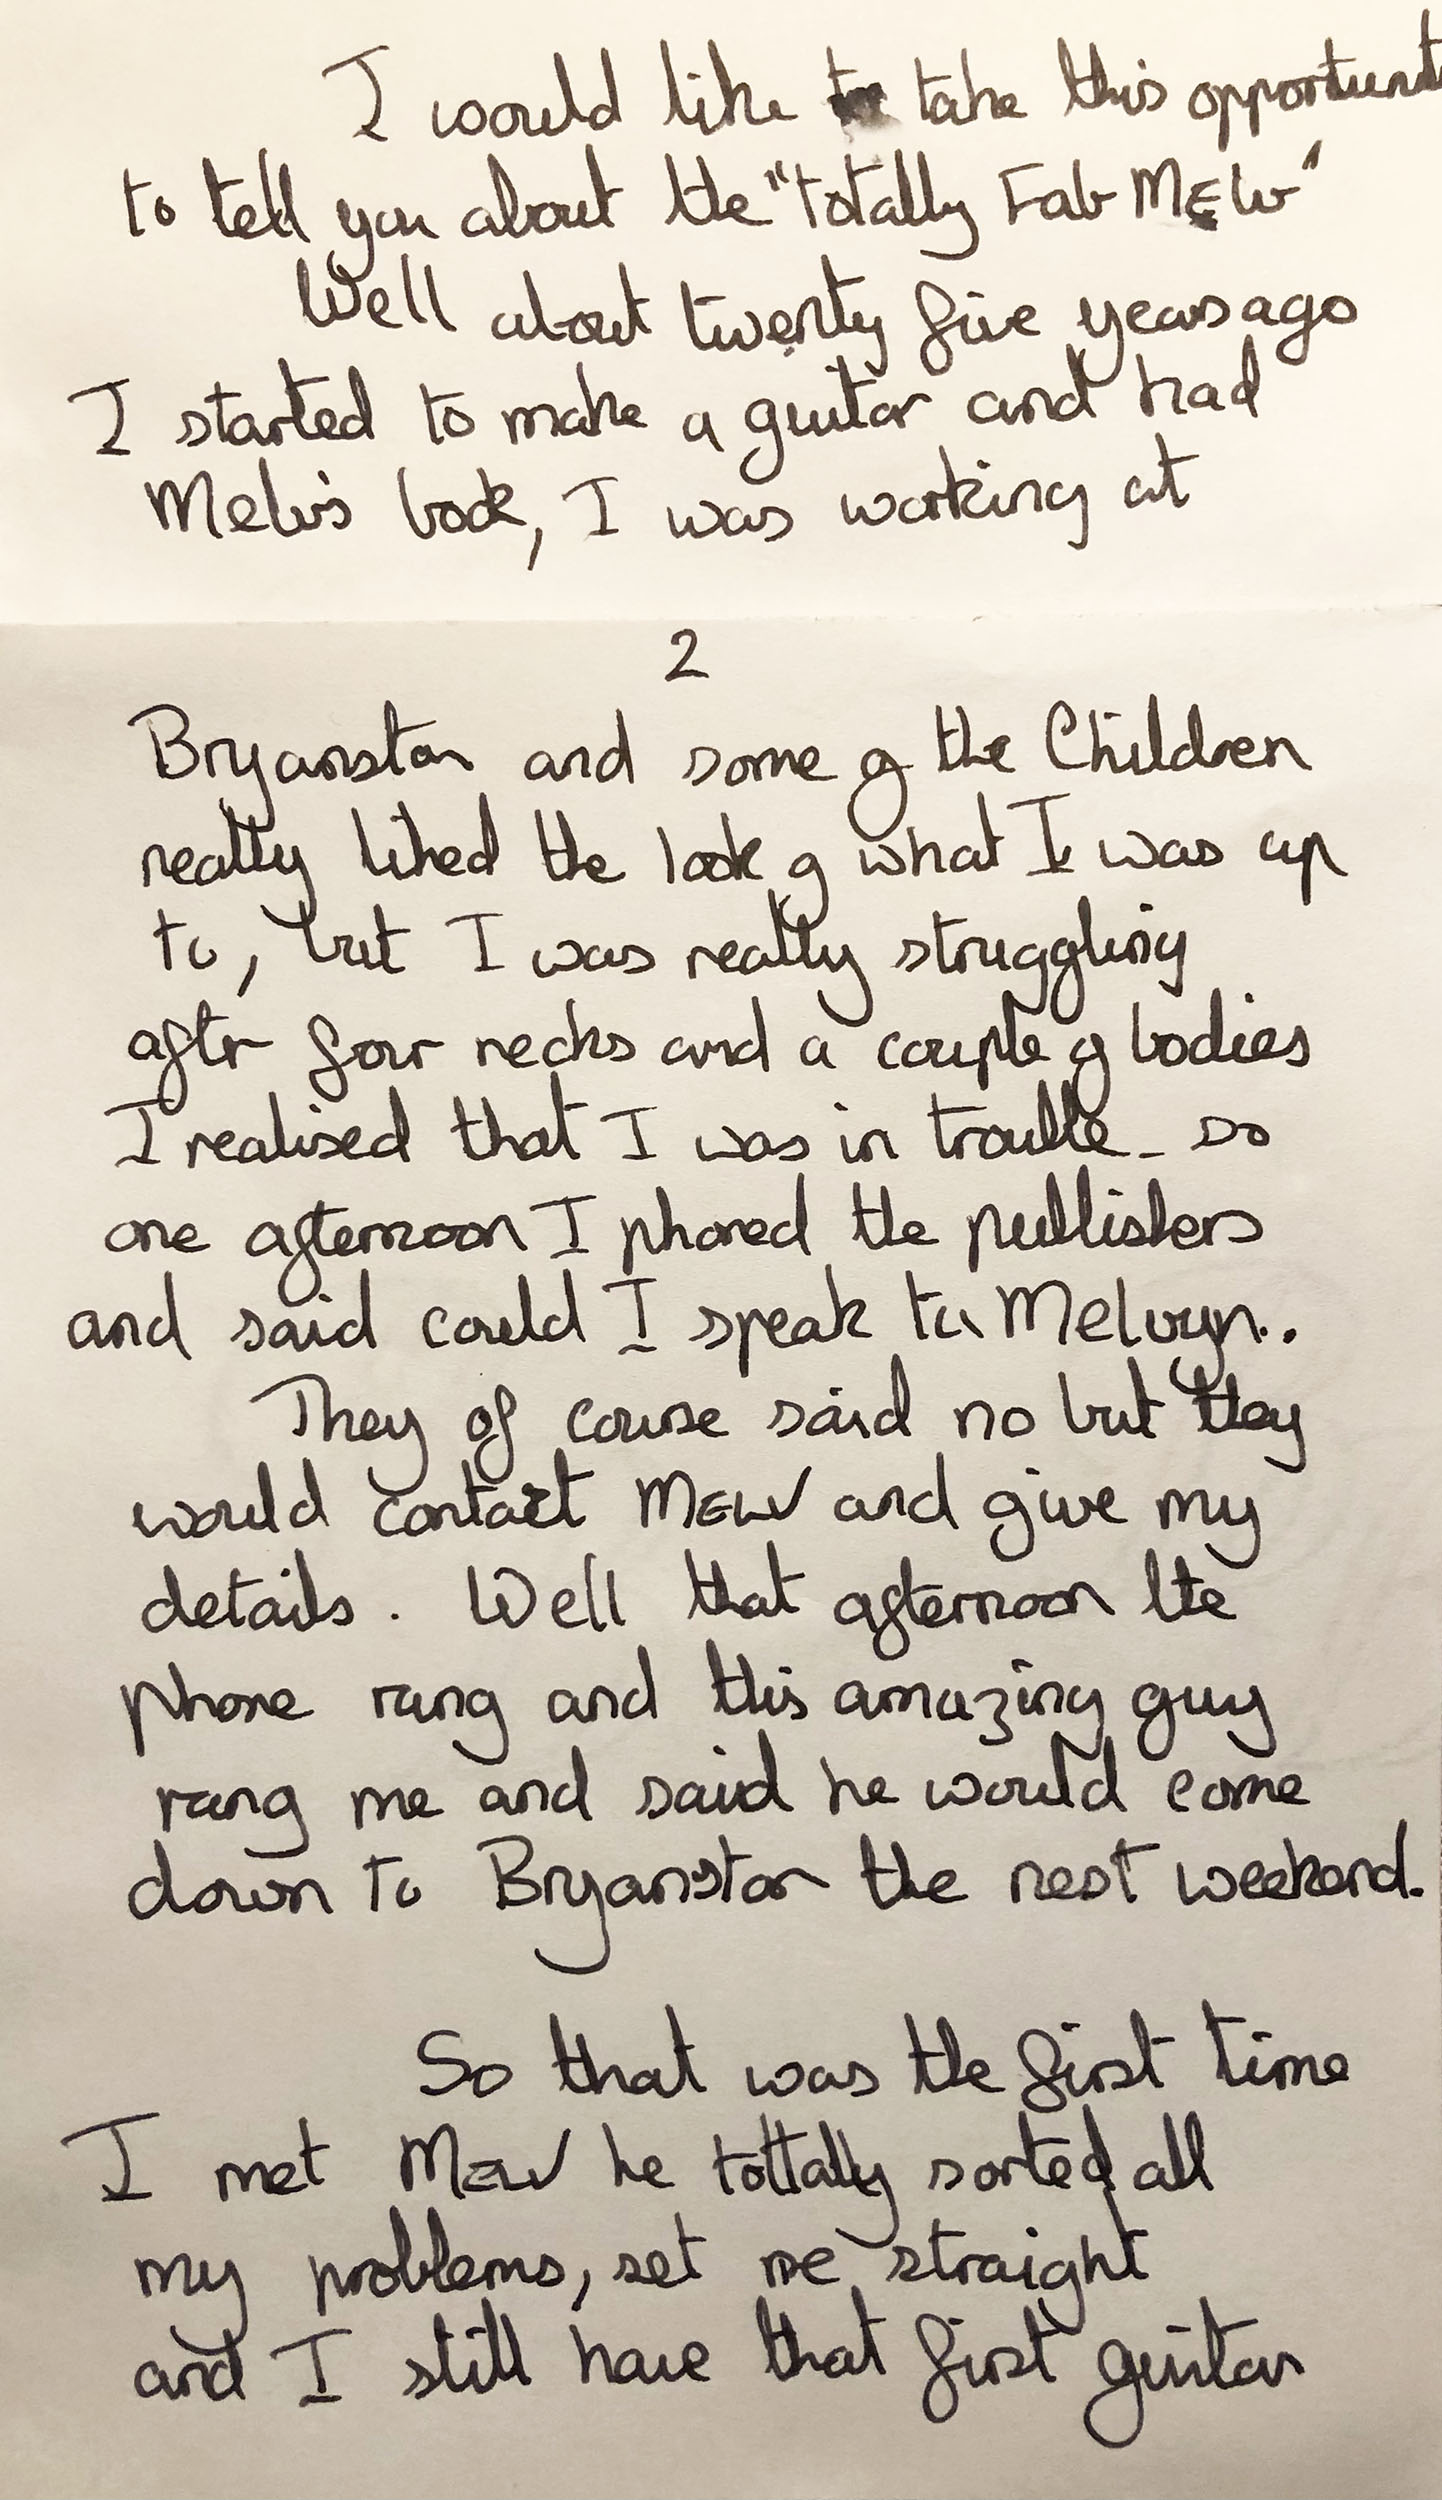 I would like to take this opportunit
to tell you about the "totally Fab MELV"
Well about twenty five years ago
I started to make a guitar and had
Melv's book, I was working at
2
Bryanston and some of the Children
really liked the look of what I was up
to, but I was really struggling
after four necks and a couple of bodies
I realised that I was in trouble - so
one afternoon I phoned the publishers
and said could I speak to Melvyn..
They of course said no but they
would contact MELV and give my
details. Well that afternoon the
phone rang and this amazing guy
rang me and said he would come
down to Bryanston the next weekend.
So that was the first time
I met MELV he tottally sorted all
my problems, set me straight
and I still have that first guitar